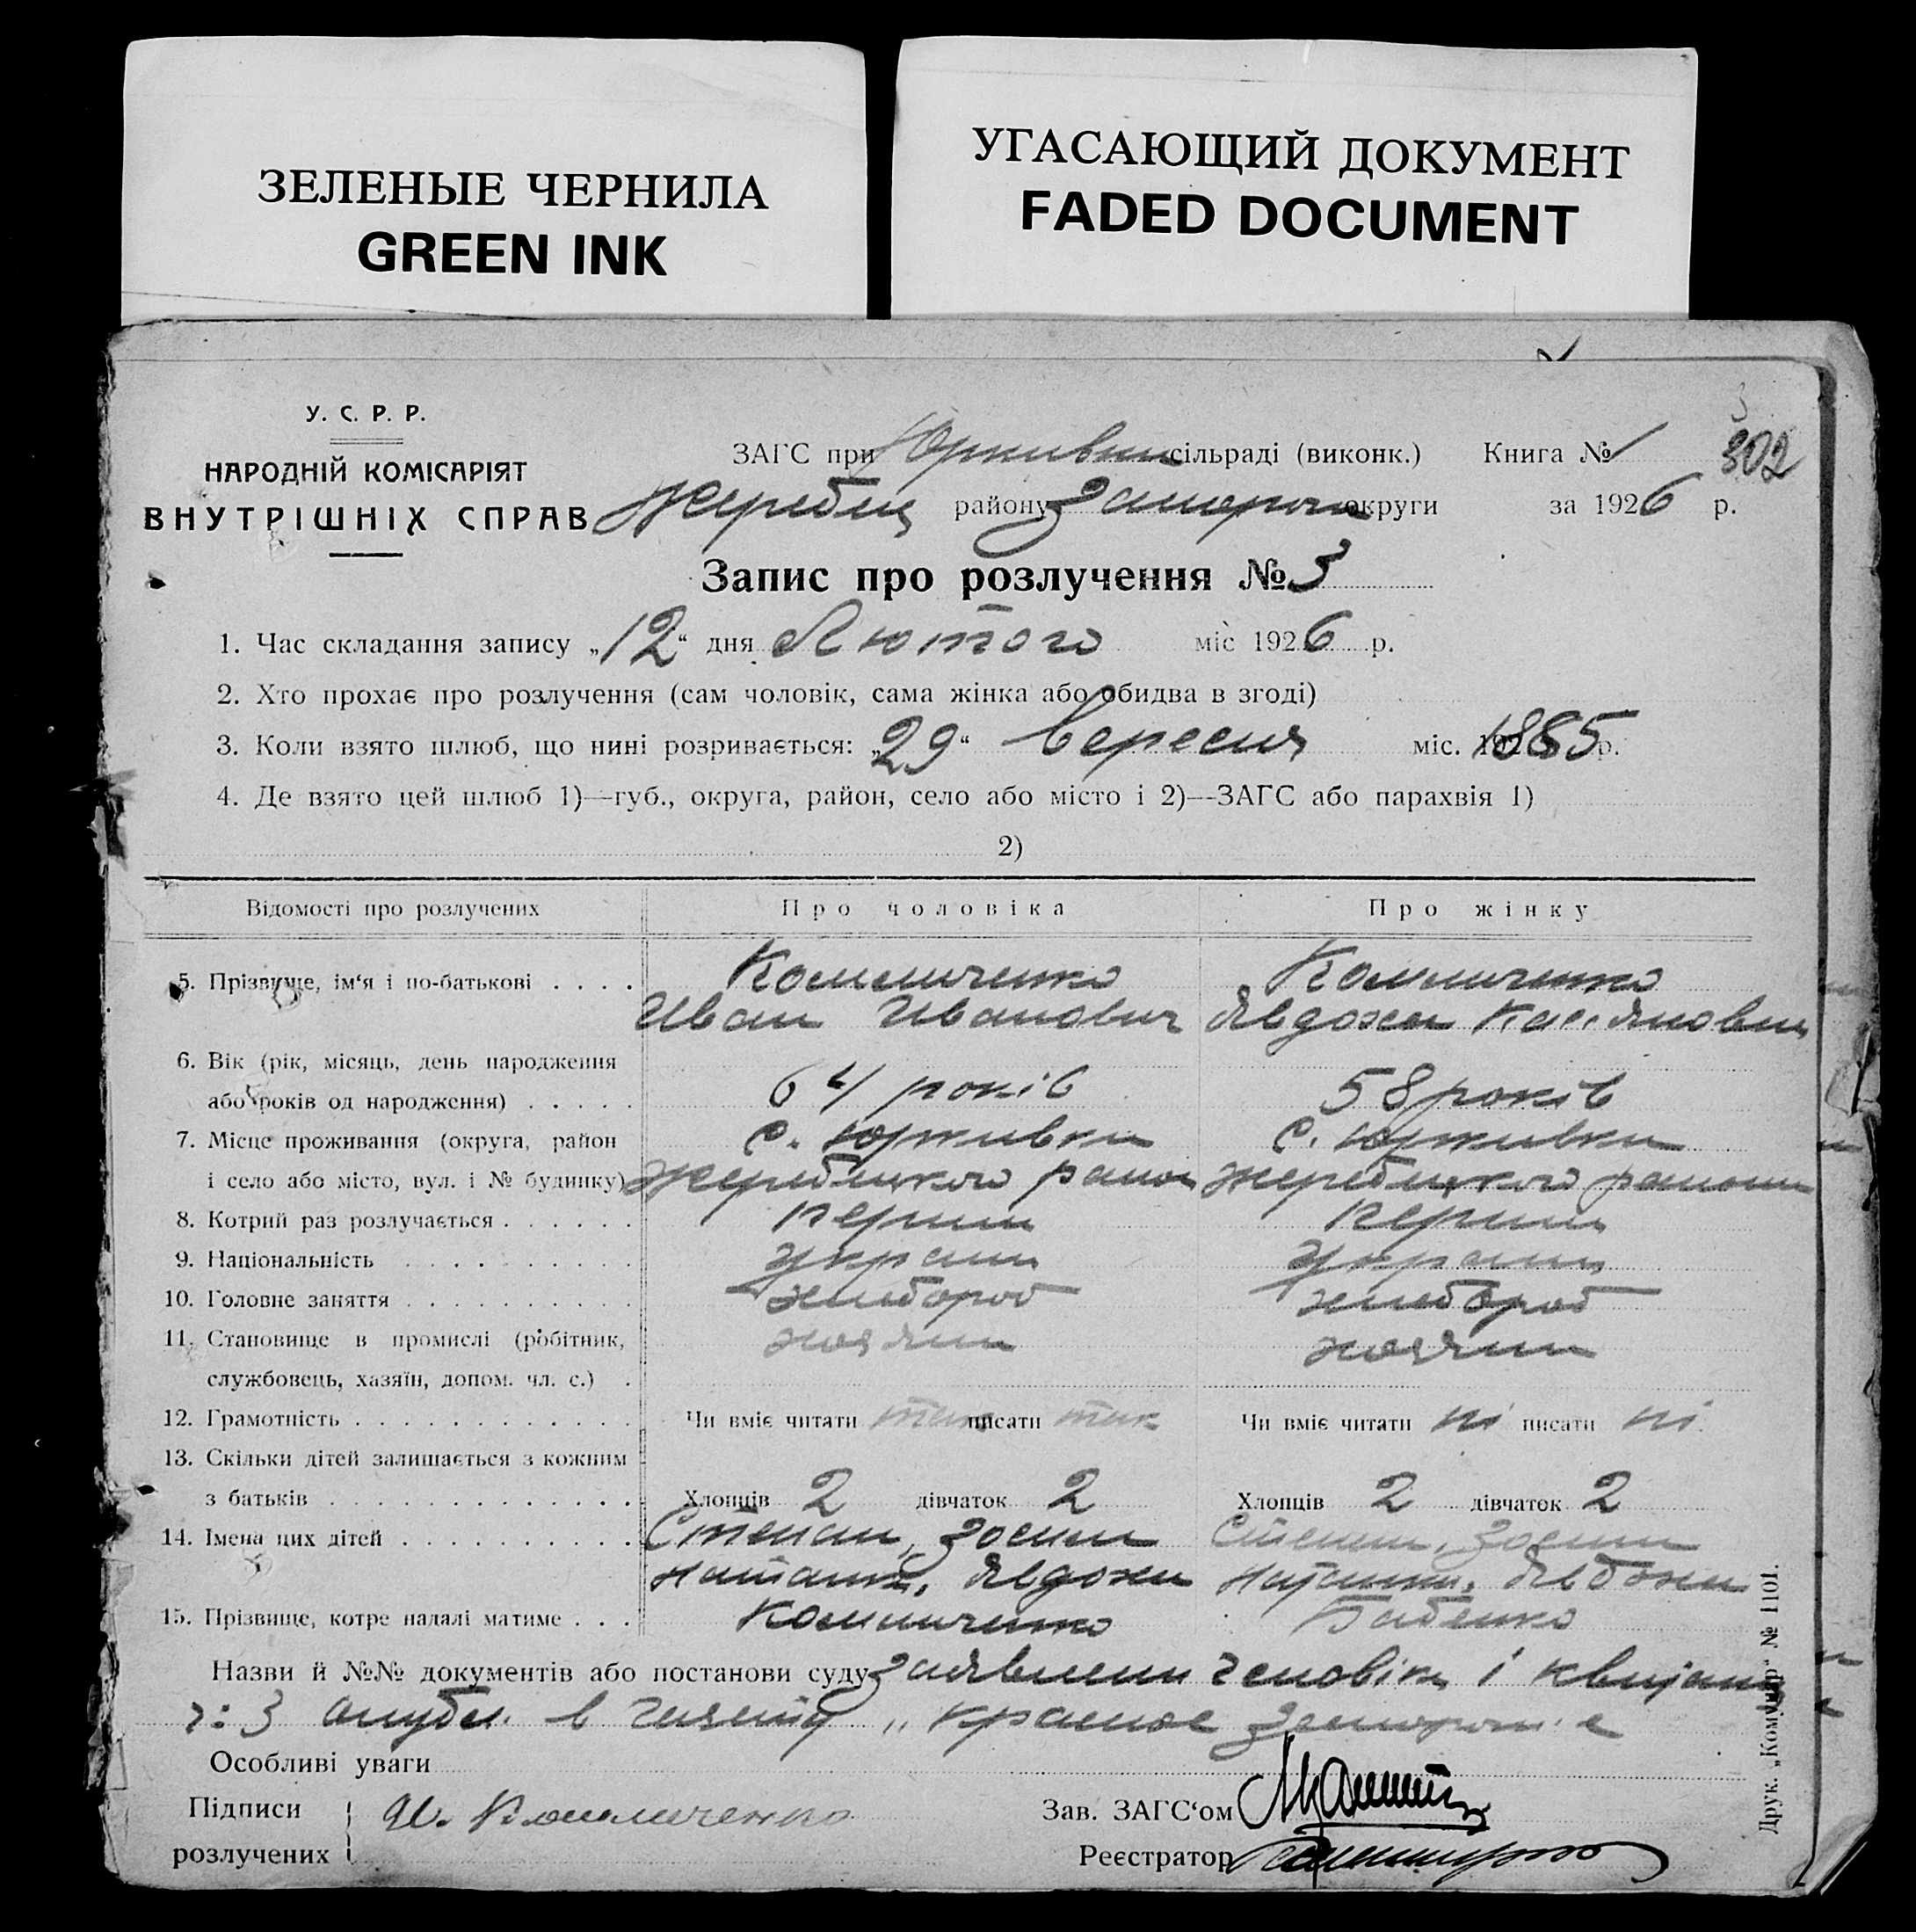 ЗЕЛЕНЫЕ ЧЕРНИЛА
GREEN INK
УГАСАЮЩИЙ ДОКУМЕНТ
FADED DOCUMENT
У. С. Р. Р.
НАРОДНІЙ КОМІСАРІЯТ
ВНУТРІШНІХ СПРАВ
ЗАГС при Юркивки сільраді (виконк.) Книга № 1 302
Жеребец району Запорож округи за 1926 р.
Запис про розлучення № 3
1. Час складання запису „12“ дня Лютого міс 1926 р.
2. Хто прохає про розлучення (сам чоловік, сама жінка або обидва в згоді)
3. Коли взято шлюб, що нині розривається: „29“ вересня міс. 1885 р.
4. Де взято цей шлюб 1)—губ., округа, район, село або місто і 2)—ЗАГС або парахвія 1)
2)
Відомості про розлучених Про чоловіка Про жінку
5. Прізвище, ім‘я і по-батькові . . . .
Иван Иванович Явдоха
6. Вік (рік, місяць, день народження
або років од народження) . . . . . 64 років 58 років
7. Місце проживання (округа, район с. Юркивки с. Юркивки
і село або місто, вул. і № будинку) Жеребецкого район Жеребецкого района
8. Котрий раз розлучається . . . . . . перший перший
9. Національність . . . . . . . . . . україн україн
10. Головне заняття . . . . . . . . . . хлибороб хлибороб
11. Становище в промислі (робітник,
службовець, хазяїн, допом. чл. с.) .
12. Грамотність . . . . . . . . . . . . Чи вміє читати так писати так Чи вміє читати ні писати ні
13. Скільки дітей залишається з кожним
з батьків . . . . . . . . . . . . . . Хлопців 2 дівчаток 2 Хлопців 2 дівчаток 2
14. Імена цих дітей . . . . . . . . . . Степан, Степан,
Наташка, Явдоха Наташка, Явдоха
15. Прізвище, котре надалі матиме . . . Бабенко
Назви й №№ документів або постанови суду заявлення чоловіка і
ч: 3 опубл. в газету „Красное Запорож е
Особливі уваги
Підписи
розлучених
Зав. ЗАГС‘ом
Реєстратор
Друк. „Комунар“ № 1101.